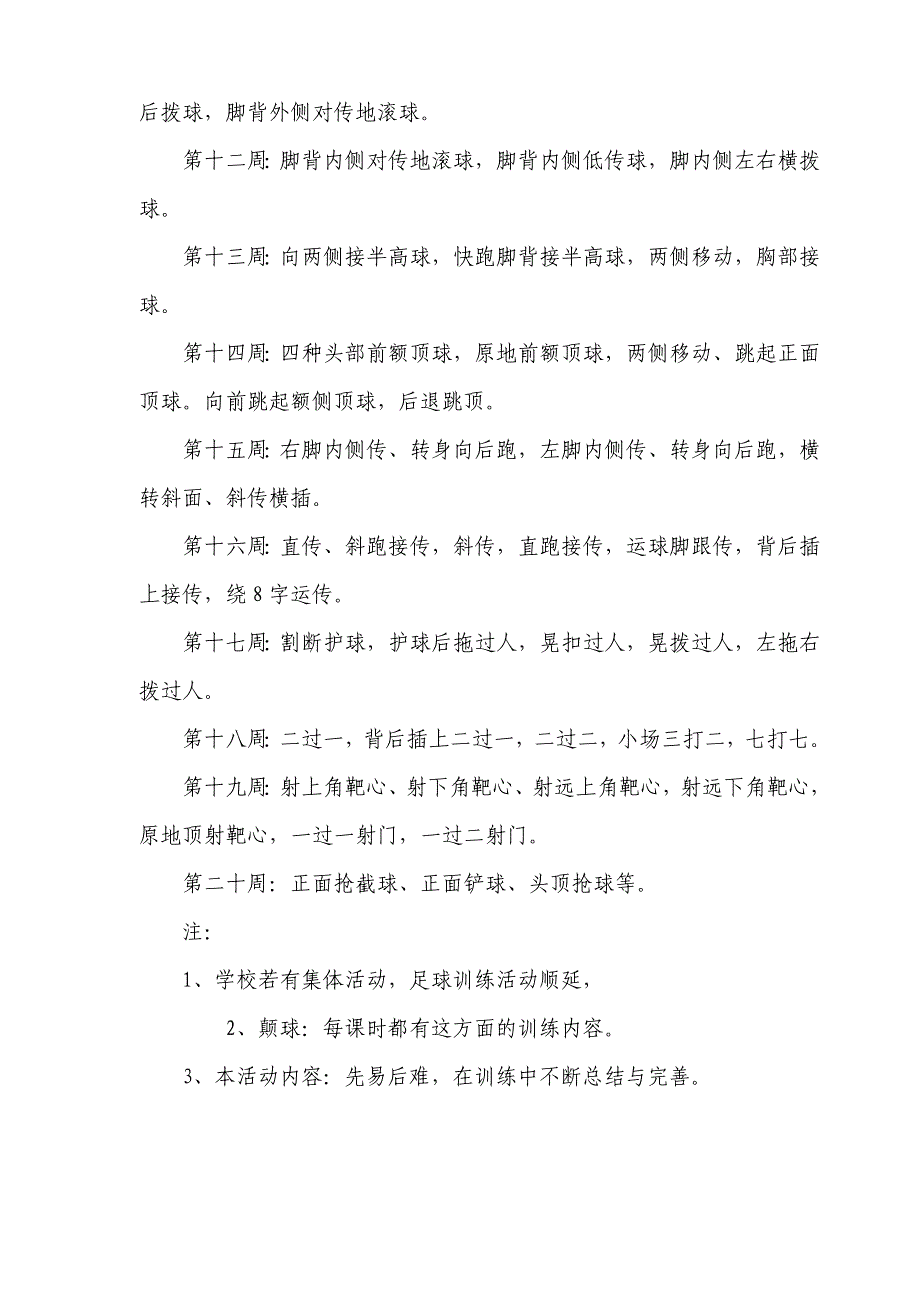 后拨球，脚背外侧对传地滚球。
第十二周：脚背内侧对传地滚球，脚背内侧低传球，脚内侧左右横拨
球。
第十三周：向两侧接半高球，快跑脚背接半高球，两侧移动，胸部接
球。
第十四周：四种头部前额顶球，原地前额顶球，两侧移动、跳起正面
顶球。向前跳起额侧顶球，后退跳顶。
第十五周：右脚内侧传、转身向后跑，左脚内侧传、转身向后跑，横
转斜面、斜传横插。
第十六周：直传、斜跑接传，斜传，直跑接传，运球脚跟传，背后插
上接传，绕 8 字运传。
第十七周：割断护球，护球后拖过人，晃扣过人，晃拨过人，左拖右
拨过人。
第十八周：二过一，背后插上二过一，二过二，小场三打二，七打七。
第十九周：射上角靶心、射下角靶心、射远上角靶心，射远下角靶心，
原地顶射靶心，一过一射门，一过二射门。
第二十周：正面抢截球、正面铲球、头顶抢球等。
注：
1、学校若有集体活动，足球训练活动顺延，
2、颠球：每课时都有这方面的训练内容。
3、本活动内容：先易后难，在训练中不断总结与完善。